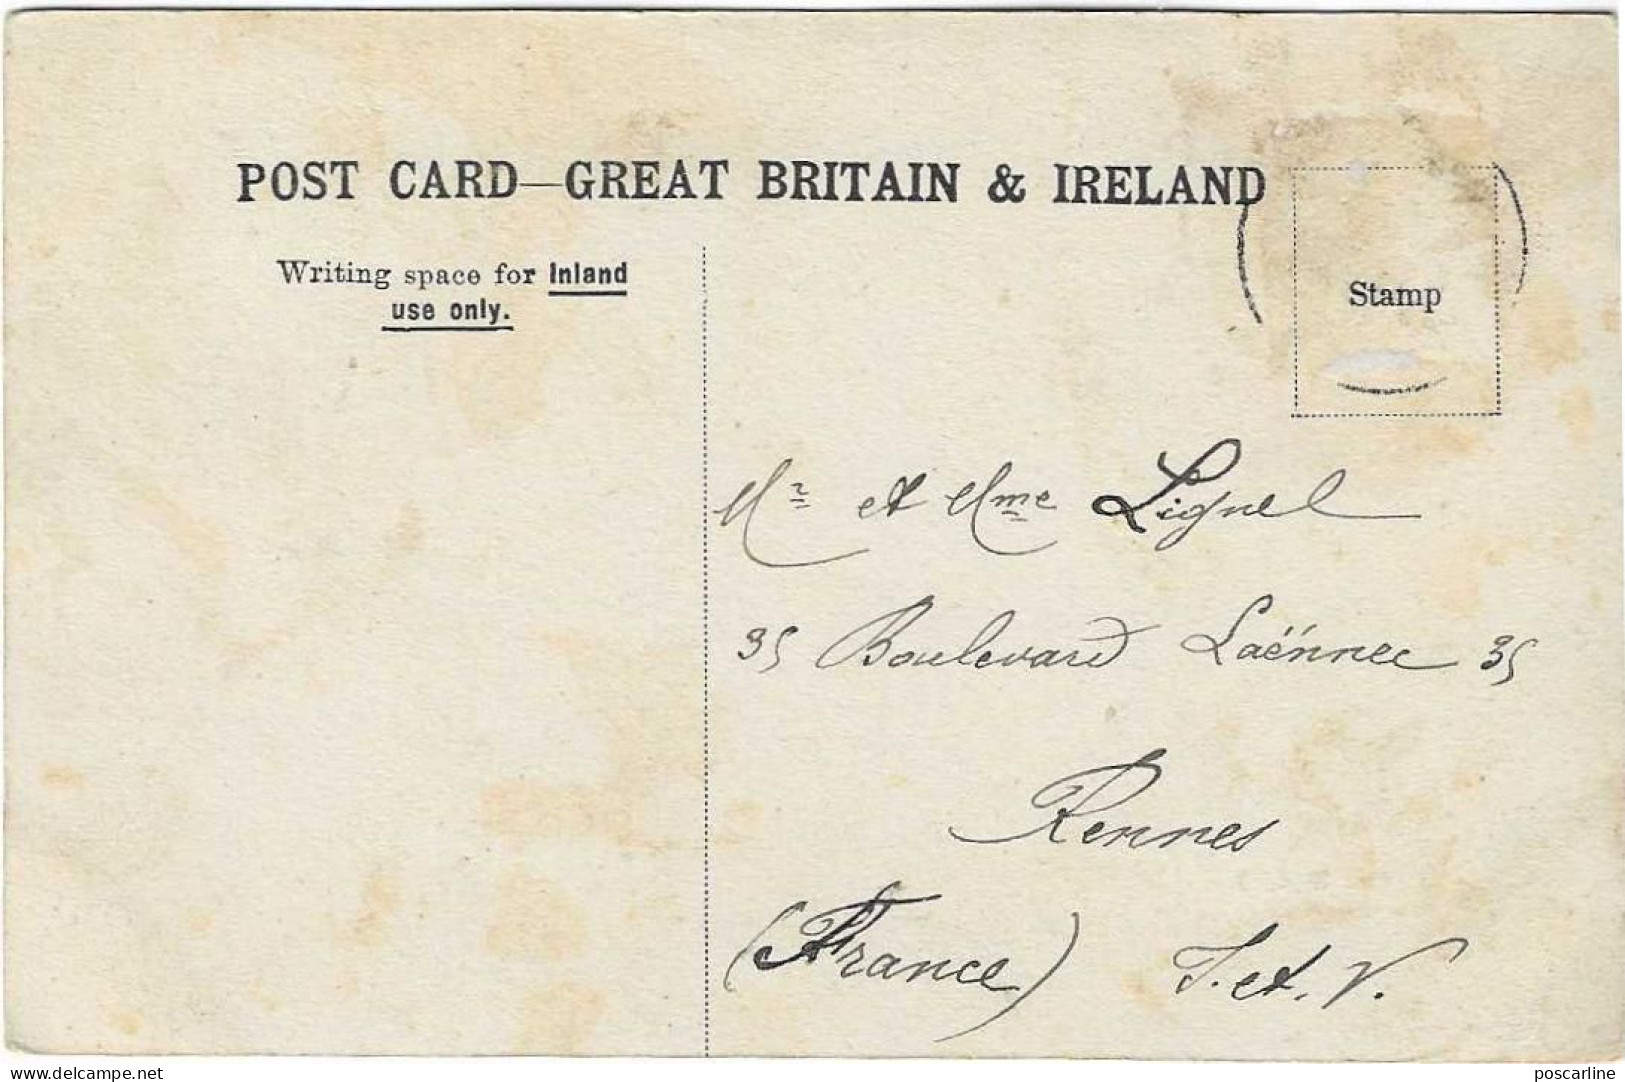 POST CARD—GREAT BRITAIN & IRELAND
Writing space for Inland
use only.
Stamp
Mr et Mme Lignel
35 Boulevard Laënnec 35
Rennes
(France) I. et. V.
delcampe.net
poscarline